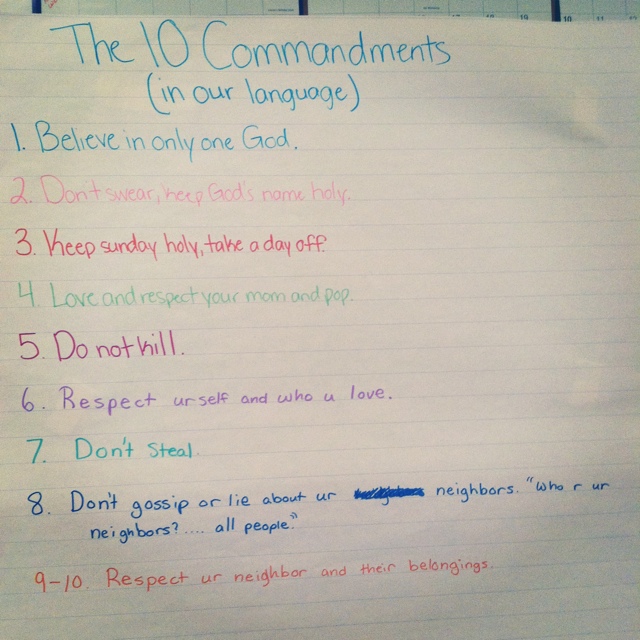 The 10 Commandments
(in our language)
1. Believe in only one God.
2. Don't swear, keep God's name holy.
3. Keep sunday holy, take a day off.
4. Love and respect your mom and pop.
5. Do not kill.
6. Respect urself and who u love.
7. Don't steal.
8. Don't gossip or lie about ur neighbors. "who r ur
neighbors? .... all people."
9-10. Respect ur neighbor and their belongings.